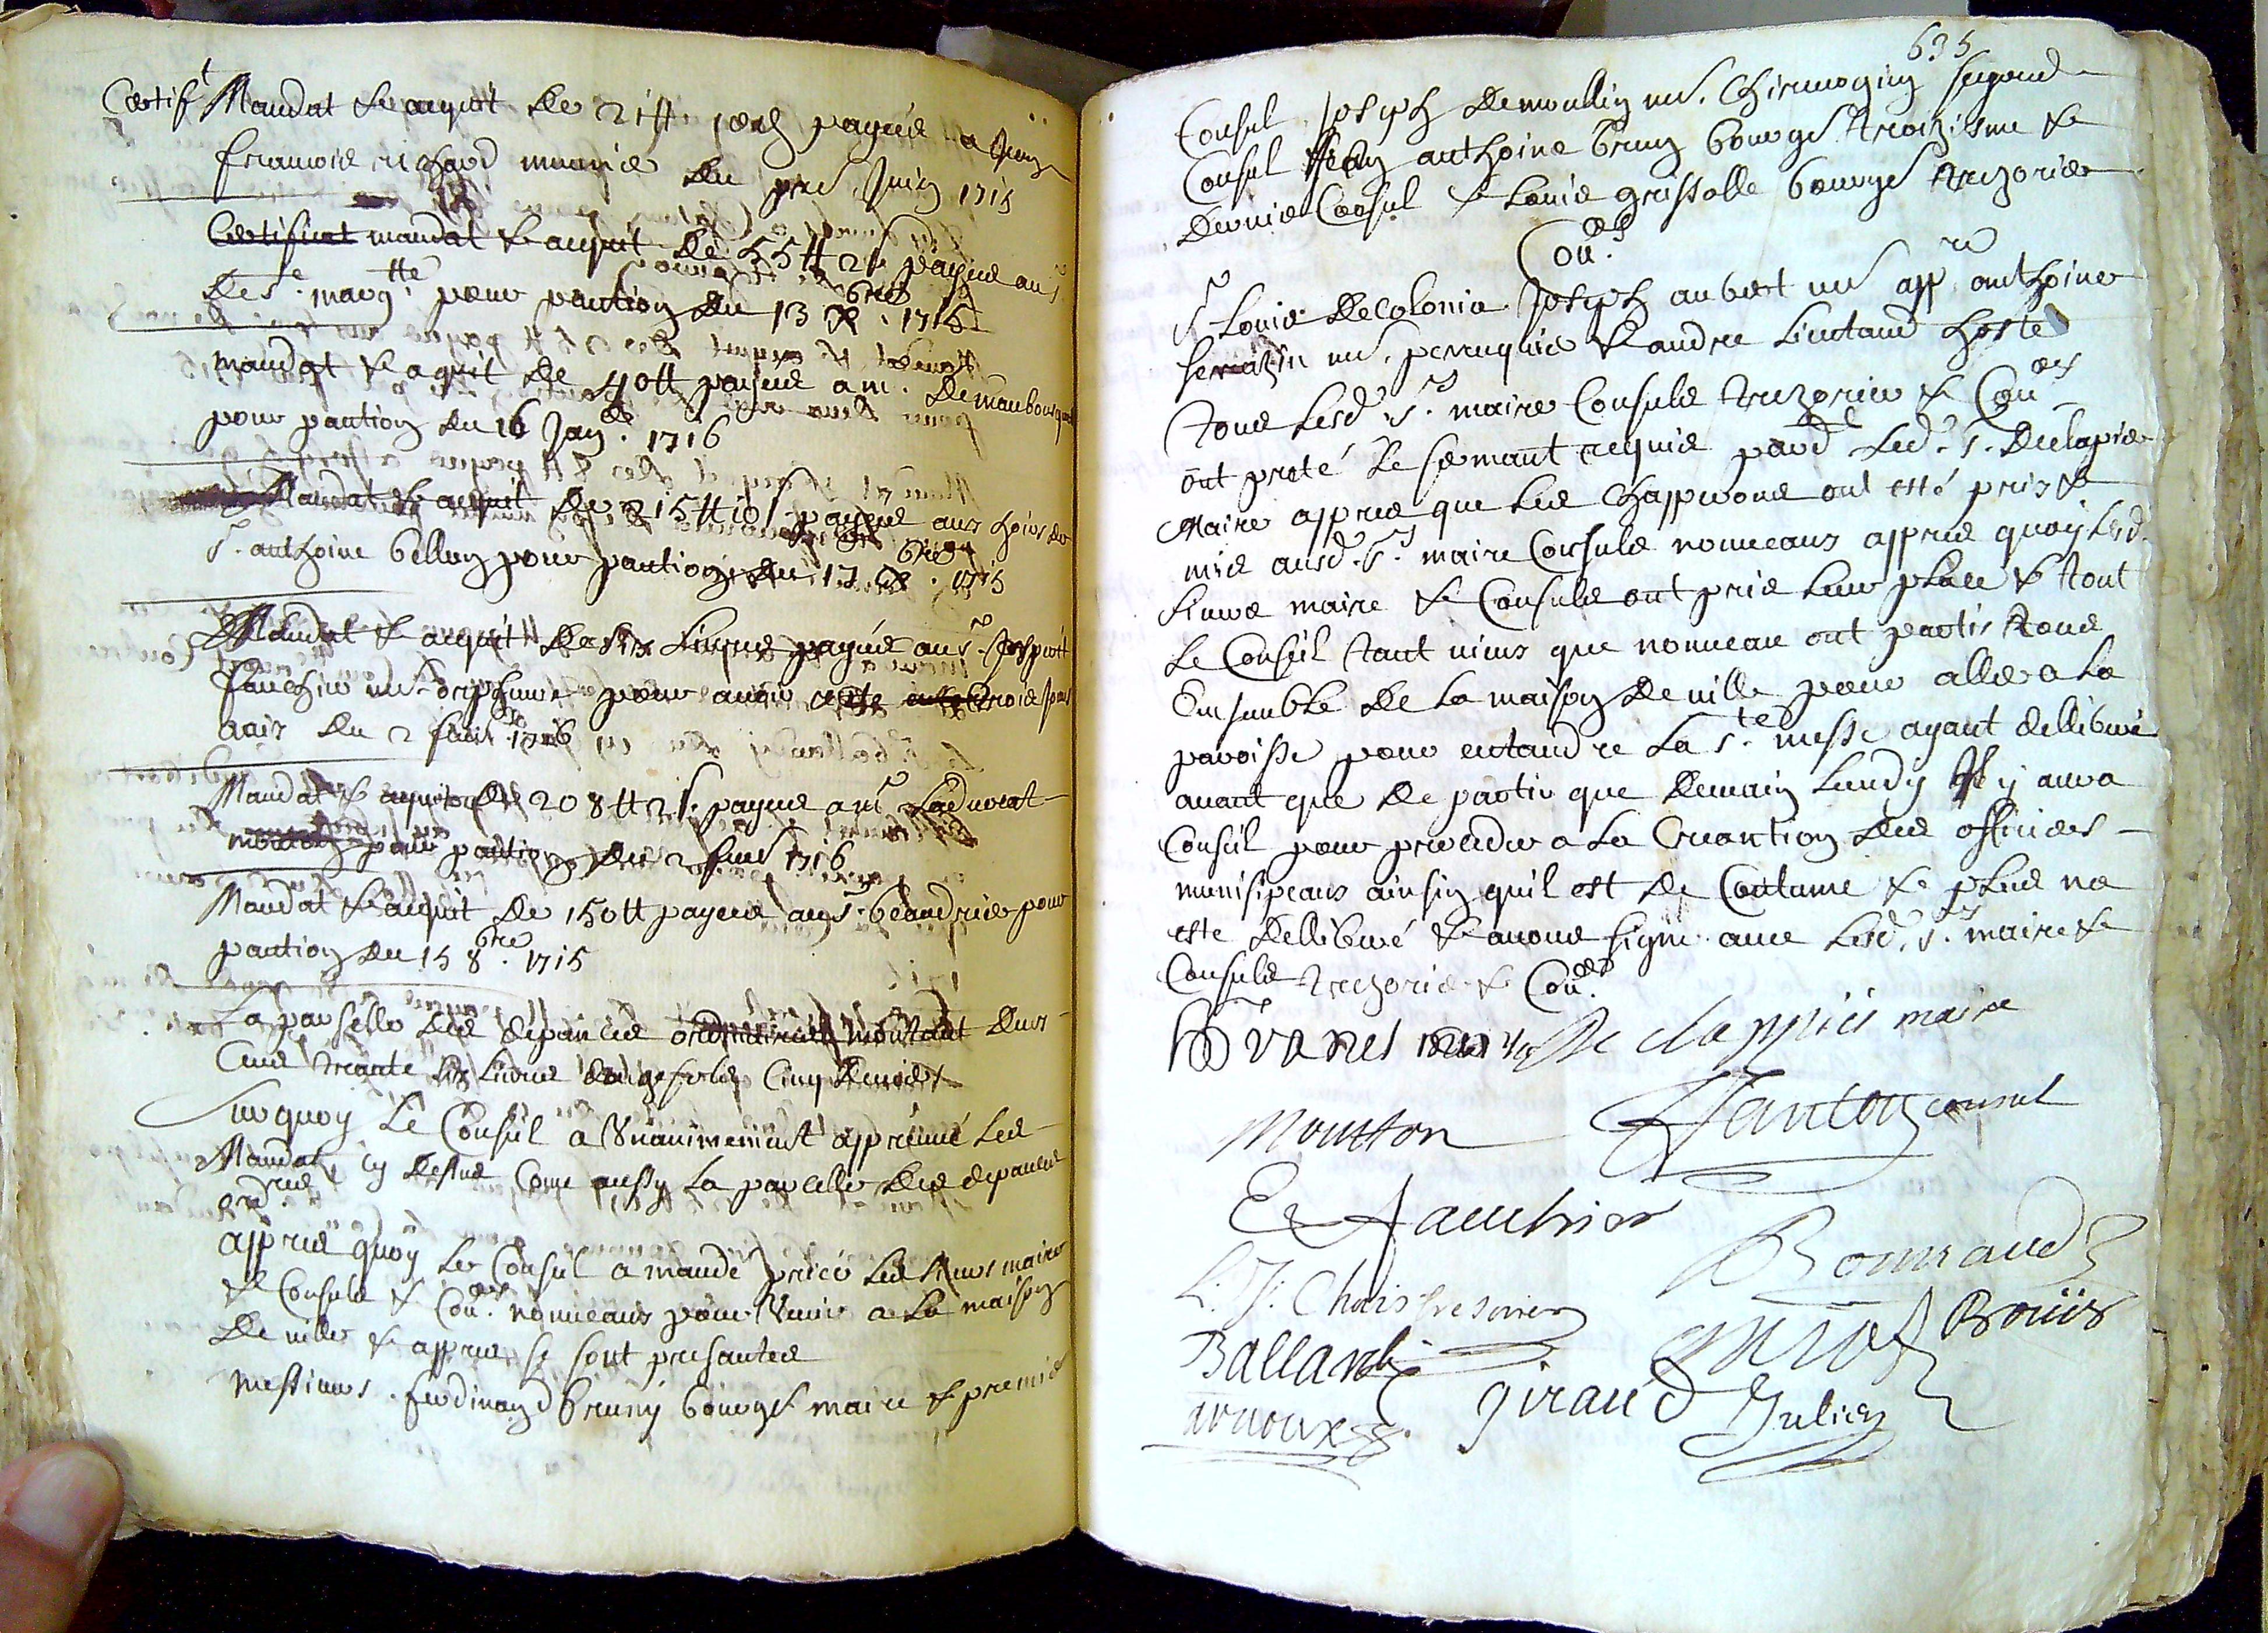 Certif.t Mandat & aquit de 21 tt payés a Jean
francois richard munié du pr.e Juin 1715
Certificat mandat & aquit de 55 tt 2 s payés au s.r
de s.te marg.tte pour pantion du 13 X.bre 1715
mandat & aquit de 40 tt payés a m. de maubousquet
pour pantion du 16 Jan. 1716
Mandat & aquit de 215 tt 10 s payés aux hoirs de
s.r anthoine bellon pour pantion du 17 bre 1715
Mandat & aquit de six livres payés au s.r
fauchier m.e orphevre pour avoir
du 2 1716
Mandat & aquit de 208 tt 2 s. payés a m.r Ladvocat
moutton pour pantion du 2 1716
Mandat & aquit de 150 tt payés au s.r beaudrier pour
pantion du 15 8.bre 1715
La parselle des depances ordinaires montant deux
cens trante six livres sols cinq deniers
Sur quoy Le Conseil a Unanimement appreuvé les
Mandats cy dessus come aussy La parcelle des depances
ord.res
appres quoy Le Conseil a mandé prier les sieurs maire
& Consuls & Con.ers nouveaux pour Venir a La maison
de ville & appres se sont presantés
messieurs ferdinand bruny bourg.s maire & premier
635
Consul Joseph demoullin m.e Chirurgien segond
Consul Jean anthoine brun bourg.s troizisme &
dernier Consul & Louis grissolle bourg.s trezorier
Con.ers
s.r Louis de Colonia Joseph aubert m.e app.re anthoine
m.e perruquier & andre Lieutaud hoste
tous Lesd. s.rs maire Consuls trezorier & Con.ers
ont preté Le sermant requis pard.t Led. s.r de Clapiers
Maire appres que Les Chapperons ont esté pris &
mis ausd. s.rs maire Consuls nouveaux appres quoy Lesd.
sieurs maire & Consuls ont pris Leur place & tout
Le Conseil tant vieux que nouveau ont partis tous
Ensamble de La maison de ville pour aller a La
paroisse pour entandre La s.te messe ayant delliberé
avant que de partir que demain Lundy Il y aura
Conseil pour proceder a La Creantion des officiers
munisipeaux ainsin quil est de Coutume & plus na
esté delliberé & avons signé avec Lesd. s.rs maire &
Consuls trezorier & Con.ers
De clappiers maire
Moutton
Janton consul
E fauchier
Bonnaud
Ballard
Broüis
arnoux
giraud
Julien